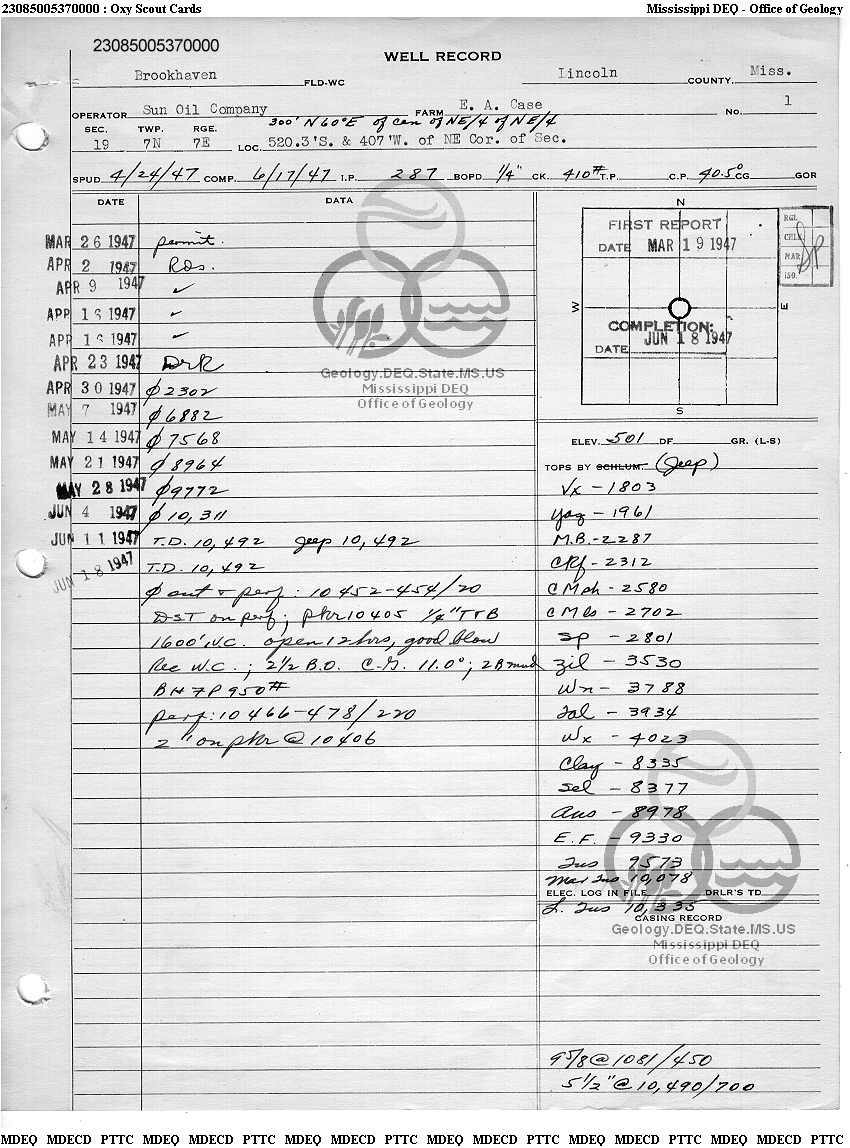 23085005370000 : Oxy Scout Cards Mississippi DEQ - Office of Geology
23085005370000
WELL RECORD
Brookhaven FLD-WC Lincoln COUNTY, Miss.
OPERATOR Sun Oil Company FARM E. A. Case No. 1
300' N60°E of cen of NE/4 of NE/4
SEC. TWP. RGE.
19 7N 7E LOC. 520.3'S. & 407'W. of NE Cor. of Sec.
SPUD 4/24/47 COMP. 6/17/47 I.P. 287 BOPD 1/4" CK. 410# T.P. C.P. 40.5° CG GOR
DATE DATA
MAR 26 1947 permit.
APR 2 1947 Rds.
APR 9 1947 ✓
APR 16 1947 ✓
APR 16 1947 ✓
APR 23 1947 Drk
APR 30 1947 Ø 2302
MAY 7 1947 Ø 6882
MAY 14 1947 Ø 7568
MAY 21 1947 Ø 8964
MAY 28 1947 Ø 9772
JUN 4 1947 Ø 10,311
JUN 11 1947 T.D. 10,492 Jeep 10,492
JUN 18 1947 T.D. 10,492
Ø out + perf: 10452-454/20
DST on perf; pkr 10405 1/4" T&B
1600' W.C. open 12 hrs, good blow
Rec W.C.; 2 1/2 B.O. C.G. 11.0°; 2B mud
BHFP 950#
perf: 10466-478/220
2" on pkr @ 10406
N
FIRST REPORT
DATE MAR 19 1947
W E
COMPLETION:
JUN 18 1947
DATE
S
RGL
CHL
MAR
ISO.
SP
ELEV. 501 DF GR. (L-S)
TOPS BY SCHLUM. (Jeep)
Vx - 1803
Yaz - 1961
M.B. - 2287
CRf - 2312
C Moh - 2580
C Mls - 2702
Sp - 2801
Zil - 3530
Wn - 3788
Tal - 3934
Wx - 4023
Clay - 8335
Sel - 8377
Aus - 8978
E.F. - 9330
Tus 9573
Mar Tus 10,078
ELEC. LOG IN FILE DRLR'S TD
L. Tus 10,335
CASING RECORD
9 5/8 @ 1081/450
5 1/2" @ 10,490/700
Geology.DEQ.State.MS.US
Mississippi DEQ
Office of Geology
Geology.DEQ.State.MS.US
Mississippi DEQ
Office of Geology
MDEQ MDECD PTTC MDEQ MDECD PTTC MDEQ MDECD PTTC MDEQ MDECD PTTC MDEQ MDECD PTTC MDEQ MDECD PTTC